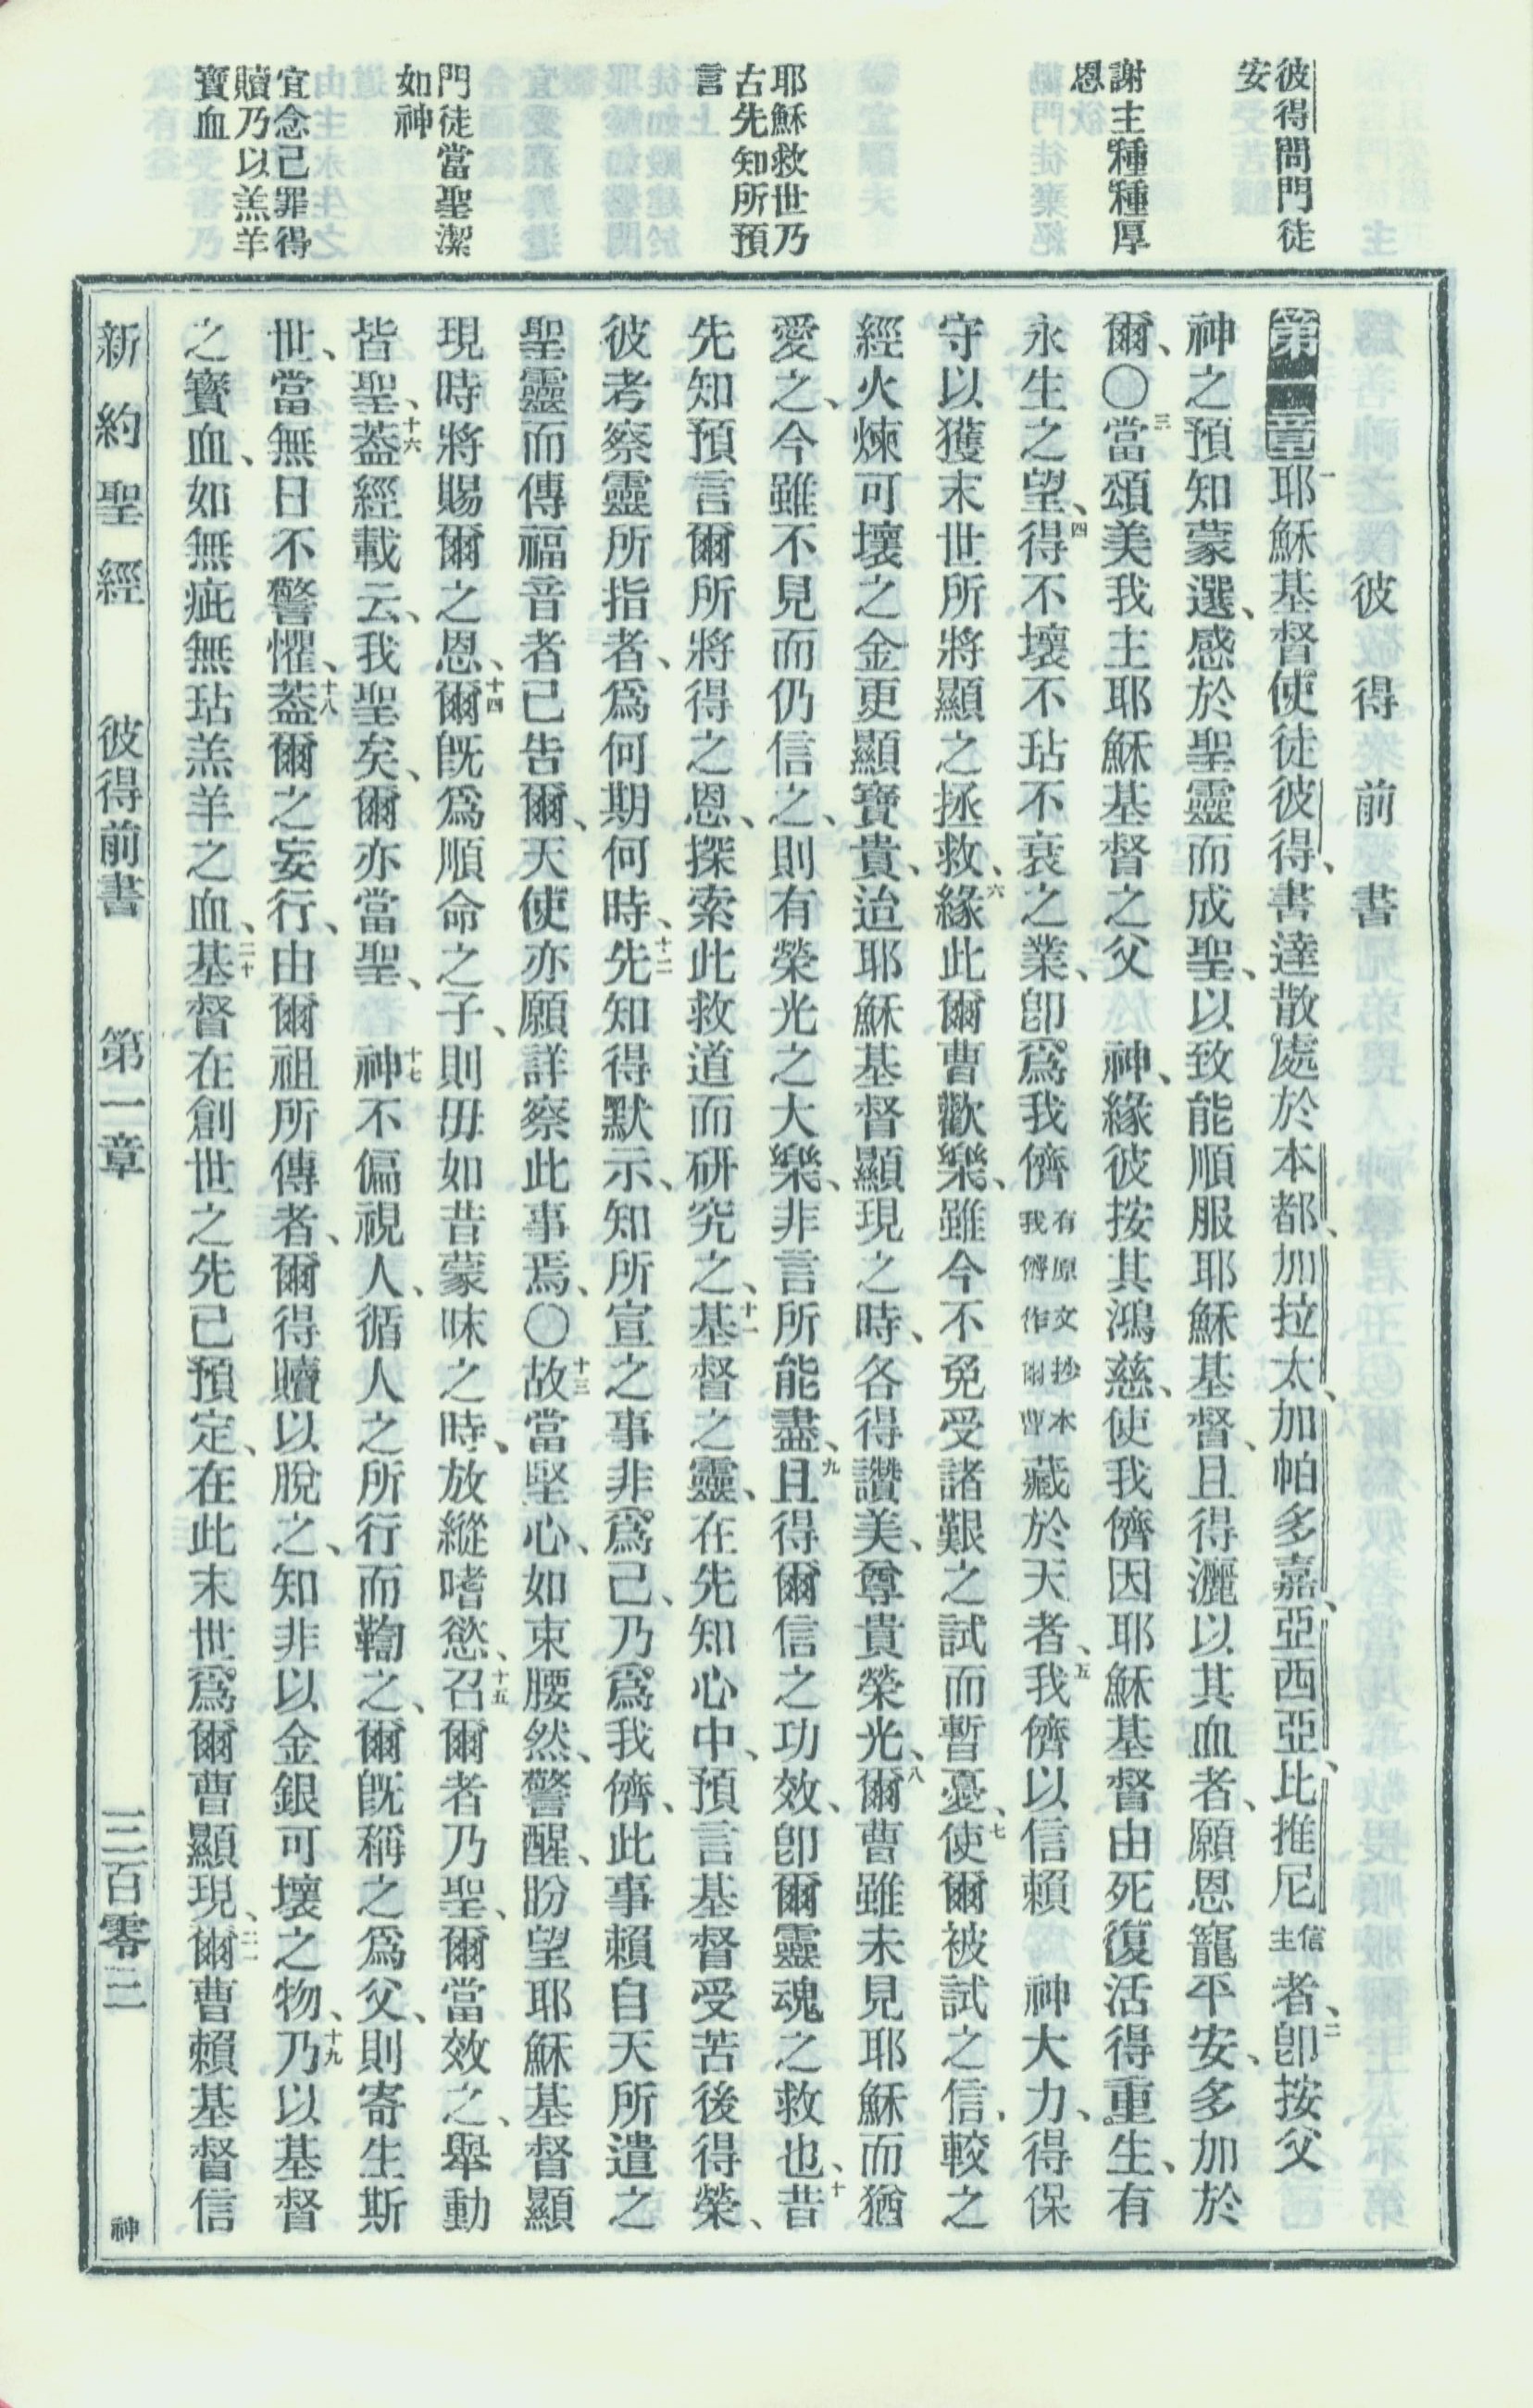 彼得問門徒
安
謝主種種厚
恩
耶穌救世乃
古先知所預
言
門徒當聖潔
如神
宜念己罪得
贖乃以羔羊
寶血
彼得前書
第一章一耶穌基督使徒彼得、書達散處於本都、加拉太、加帕多嘉、亞西亞、比推尼信主者、二卽按父
神之預知蒙選、感於聖靈而成聖、以致能順服耶穌基督、且得灑以其血者、願恩寵平安、多加於
爾、〇三當頌美我主耶穌基督之父 神、緣彼按其鴻慈、使我儕因耶穌基督由死復活得重生、有
永生之望、四得不壞不玷不衰之業、卽爲我儕有原文抄本我儕作爾曹藏於天者、五我儕以信賴 神大力、得保
守以獲末世所將顯之拯救、六緣此爾曹歡樂、雖今不免受諸艱之試而暫憂、七使爾被試之信、較之
經火煉可壞之金更顯寶貴、迨耶穌基督顯現之時、各得讚美、尊貴榮光、八爾曹雖未見耶穌而猶
愛之、今雖不見而仍信之、則有榮光之大樂、非言所能盡、九且得爾信之功效、卽爾靈魂之救也、十昔
先知預言爾所將得之恩、探索此救道而研究之、十一基督之靈、在先知心中、預言基督受苦後得榮、
彼考察靈所指者、爲何期何時、十二先知得默示、知所宣之事非爲己、乃爲我儕、此事賴自天所遣之
聖靈而傳福音者已告爾、天使亦願詳察此事焉、〇十三故當堅心、如束腰然、警醒、盼望耶穌基督顯
現時將賜爾之恩、十四爾旣爲順命之子、則毋如昔蒙昧之時、放縱嗜慾、十五召爾者乃聖、爾當效之、舉動
皆聖、十六蓋經載云、我聖矣、爾亦當聖、 十七神不偏視人、循人之所行而鞫之、爾旣稱之爲父、則寄生斯
世、當無日不警懼、十八蓋爾之妄行、由爾祖所傳者、爾得贖以脫之、知非以金銀可壞之物、十九乃以基督
之寶血、如無疵無玷羔羊之血、二十基督在創世之先已預定、在此末世爲爾曹顯現、二一爾曹賴基督信
新約聖經 彼得前書 第一章 三百零三 神